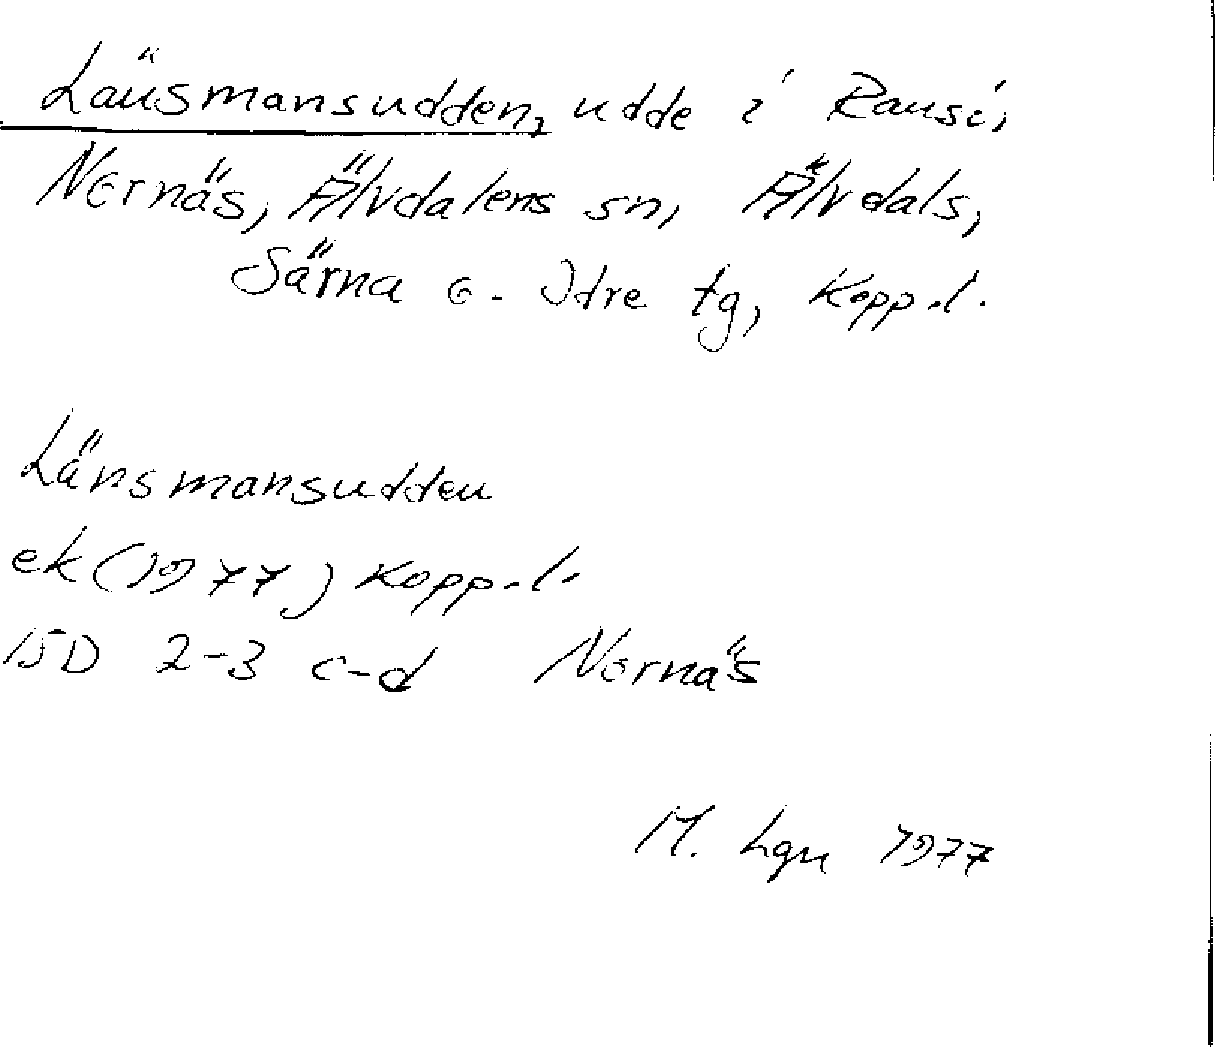 Länsmansudden, udde i Ransi,
Nornäs, Älvdalens sn, Älvdals,
Särna o. Idre tg, Kopp.l.
Länsmansudden
ek (1977) Kopp.l.
15D 2-3 c-d Nornäs
M. Lgn 1977